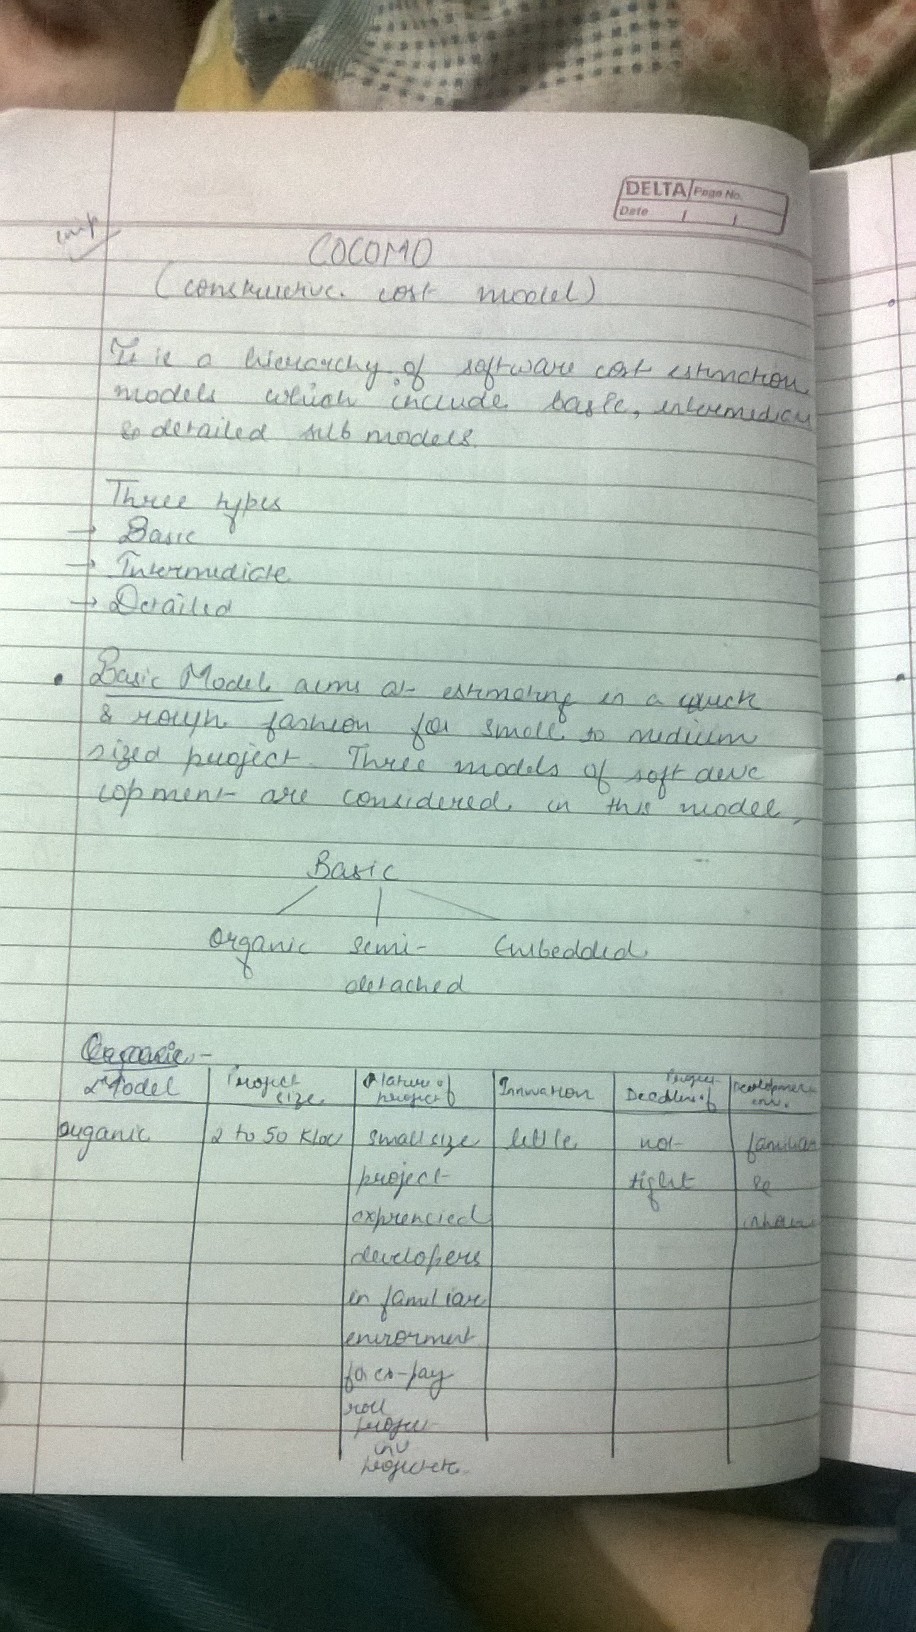 DELTA Page No.
Date / /
imp
COCOMO
(constructive cost model)
It is a hierarchy of software cost estimation
models which include basic, intermediate
& detailed sub models.
Three types
→ Basic
→ Intermediate
→ Detailed
• Basic Model aims at estimating in a quick
& rough fashion for small to medium
sized project. Three models of soft deve
lopment are considered in this model,
Basic
Organic semi- Embedded
detached
Organic -
Model Project size Nature of project Innovation Project Deadline of Development env.
organic 2 to 50 KLOC small size little not familiar
project tight &
exprencied inhouse
developers
in familiar
enviorment
for ex-pay
roll
project
inv
projects.